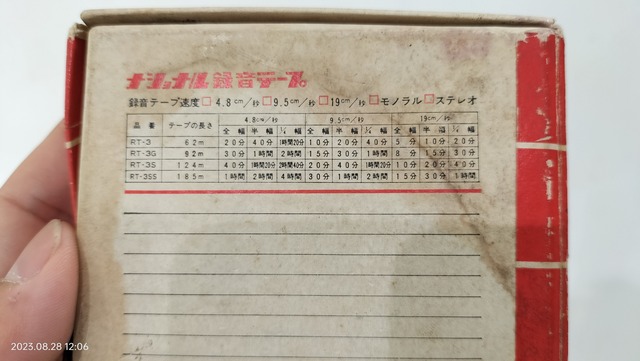 ナショナル録音テープ
録音テープ速度□4.8cm/秒□9.5cm/秒□19cm/秒□モノラル□ステレオ
4.8cm/秒 9.5cm/秒 19cm/秒
品番 テープの長さ 全幅 半幅 ¼幅 全幅 半幅 ¼幅 全幅 半幅 ¼幅
RT-3 62m 20分 40分 1時間20分 10分 20分 40分 5分 10分 20分
RT-3G 92m 30分 1時間 2時間 15分 30分 1時間 8分 15分 30分
RT-3S 124m 40分 1時間20分 2時間40分 20分 40分 1時間20分 10分 20分 40分
RT-3SS 185m 1時間 2時間 4時間 30分 1時間 2時間 15分 30分 1時間
2023.08.28 12:06